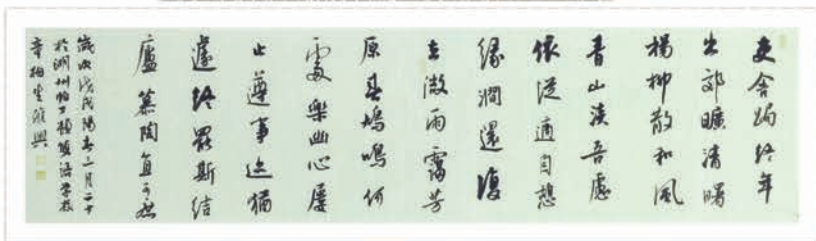 吏舍跼終年
出郊曠清曙
楊柳散和風
青山淡吾慮
依從適自憩
緣澗還復
去微雨靄芳
原春鳩鳴何
處樂幽心屢
止遵事迹猶
遽終罷斯結
廬慕陶直可庶
歲次戊戌陽春三月二十
於湖州雙語學校
章柏雅興